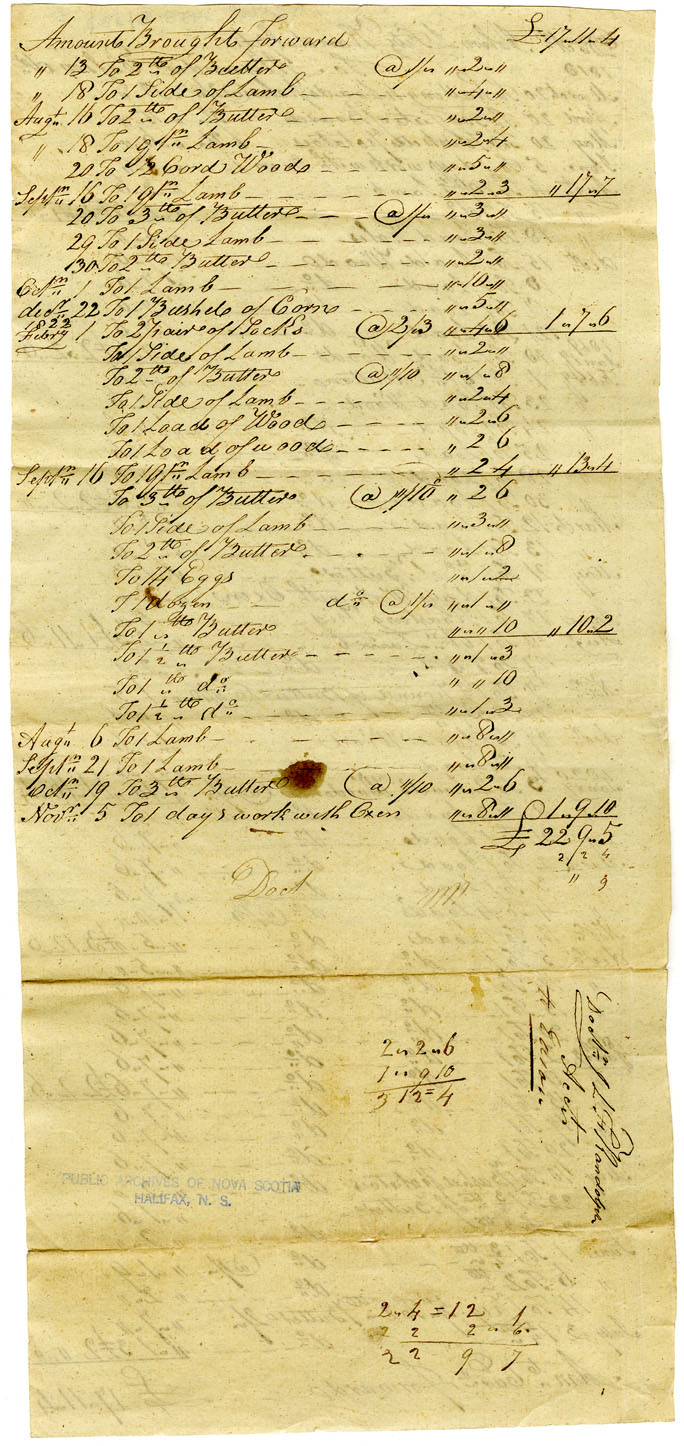 Amount Brought forward £ 17 " 11 " 4
" 13 To 2 lb of Butter @ 1/" " 2 "
" 18 To 1 Side of Lamb " 4 "
Augt 16 To 2 lb of Butter " 2 "
" 18 To 1 qr Lamb " 2 " 4
20 To 1/2 Cord Wood " 5 "
Septm 16 To 1 qr Lamb " 2 " 3 " 17 " 7
20 To 3 lb of Butter @ 1/" " 3 "
29 To 1 Side Lamb " 3 "
30 To 2 lb Butter " 2 "
Octm 1 To 1 Lamb " 10 "
decr 22 To 1 Bushel of Corn " 5 "
1822
Febry 1 To 2 pair of Socks @ 2/3 " 4 " 6 1 " 7 " 6
To 1 Side of Lamb " 2 "
To 2 lb of Butter @ "/10 " 1 " 8
To 1 Side of Lamb " 2 " 4
To 1 Load of Wood " 2 " 6
To 1 Load of wood " 2 6
Septm 16 To 1 qr Lamb " 2 4 " 13 " 4
To 3 lb of Butter @ "/10 " 2 6
To 1 Side of Lamb " 3 "
To 2 lb of Butter " 1 " 8
To 14 Eggs " 1 " 2
T 1 dozen do @ 1/" " 1 "
To 1 lb Butter " " 10 " 10 " 2
To 1 1/2 lb Butter " 1 " 3
To 1 lb do " " 10
To 1 1/2 lb do " 1 " 3
Augt 6 To 1 Lamb " 8 "
Septm 21 To 1 Lamb " 8 "
Octm 19 To 3 lb Butter @ "/10 " 2 " 6
Novr 5 To 1 days work with Oxen " 8 " 1 " 9 " 10
£ 22 9 " 5
2/2 4
" 9
Doct
Doctr L. F. Randolph
Acct
2 " 2 " 6
1 " 9 10
3 12 = 4
PUBLIC ARCHIVES OF NOVA SCOTIA
HALIFAX, N. S.
2 " 4 = 12 1
2 2 2 " 6
22 9 7